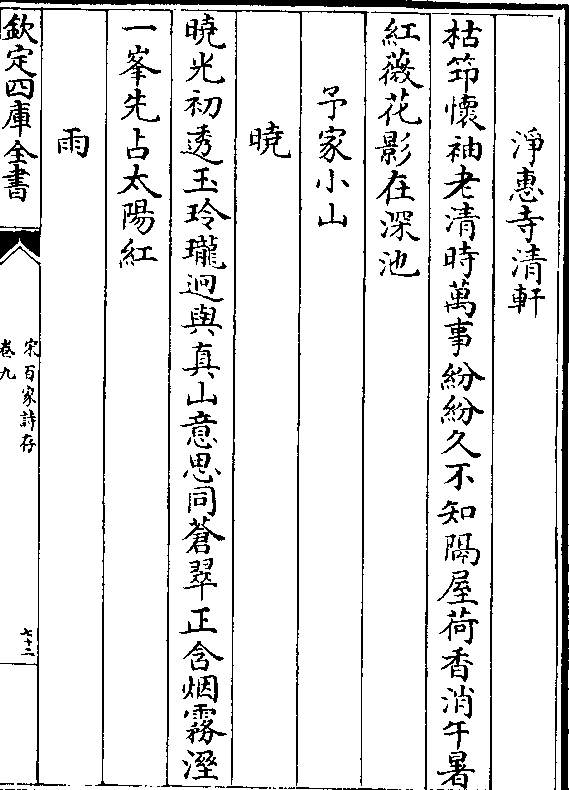 淨惠寺清軒
枯筇懷袖老清時萬事紛紛久不知隔屋荷香消午暑
紅薇花影在深池
予家小山
曉
曉光初透玉玲瓏迥與真山意思同蒼翠正含烟霧溼
一峯先占太陽紅
雨
欽定四庫全書
宋百家詩存
卷九
七十二